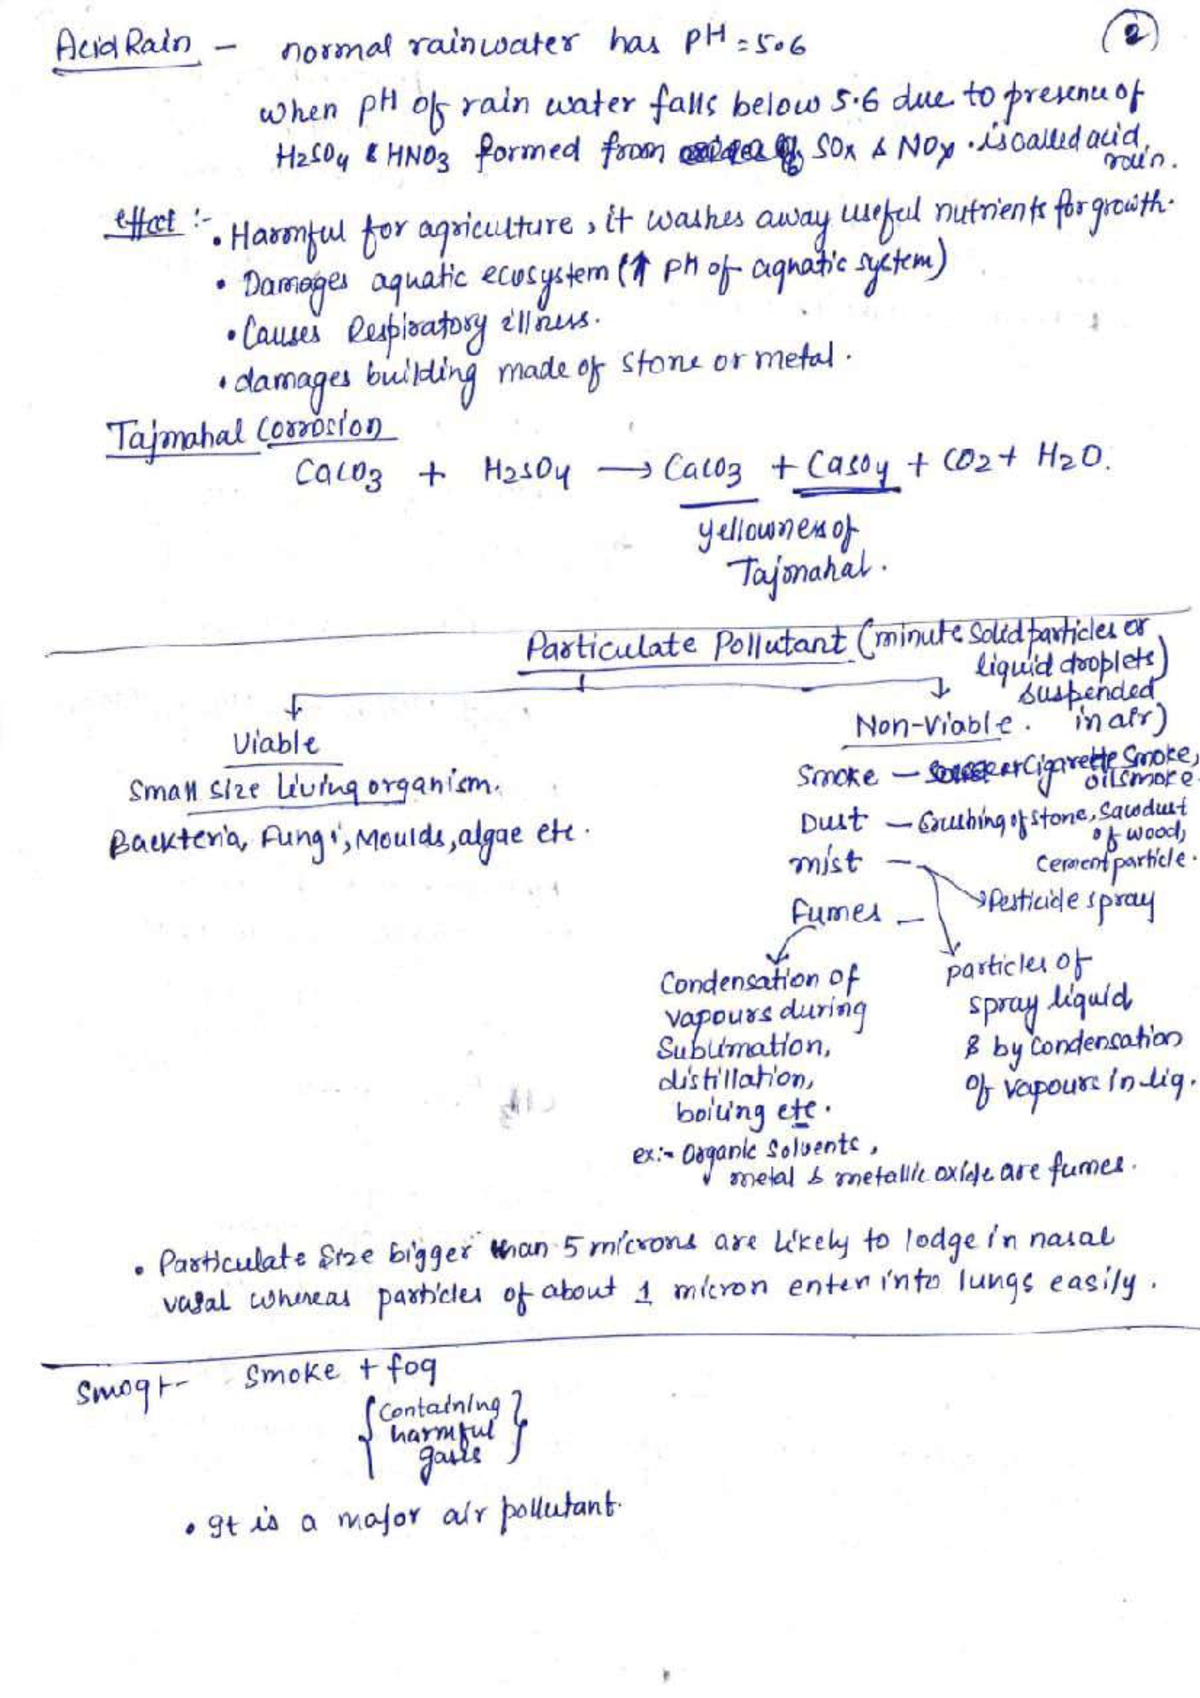 Acid Rain - normal rainwater has pH = 5.6
2
when pH of rain water falls below 5.6 due to presence of
H2SO4 & HNO3 formed from SOx & NOx . is called acid
rain.
effect :- • Harmful for agriculture, it washes away useful nutrients for growth.
• Damages aquatic ecosystem (↑ pH of aqnatic system)
• Causes Respiratory illness.
• damages building made of stone or metal.
Tajmahal Corrosion
CaCO3 + H2SO4 → CaCO3 + CaSO4 + CO2 + H2O.
yellowness of
Tajmahal.
Particulate Pollutant (minute solid particles or
liquid droplets)
suspended
in air)
Viable
Non-Viable.
Small size living organism.
Backteria, Fungi, Moulds, algae etc.
Smoke - Cigarette Smoke,
oil smoke.
Dust - Crushing of stone, Sawdust
of wood,
Cement particle.
mist - → Pesticide spray
Fumes -
Condensation of
vapours during
Sublimation,
distillation,
boiling etc.
particles of
spray liquid
& by condensation
of vapours in liq.
ex:- Organic Solvents,
metal & metallic oxide are fumes.
• Particulate size bigger than 5 microns are likely to lodge in nasal
vasal whereas particles of about 1 micron enter into lungs easily.
Smog :- Smoke + fog
{containing
harmful
gases}
• It is a major air pollutant.